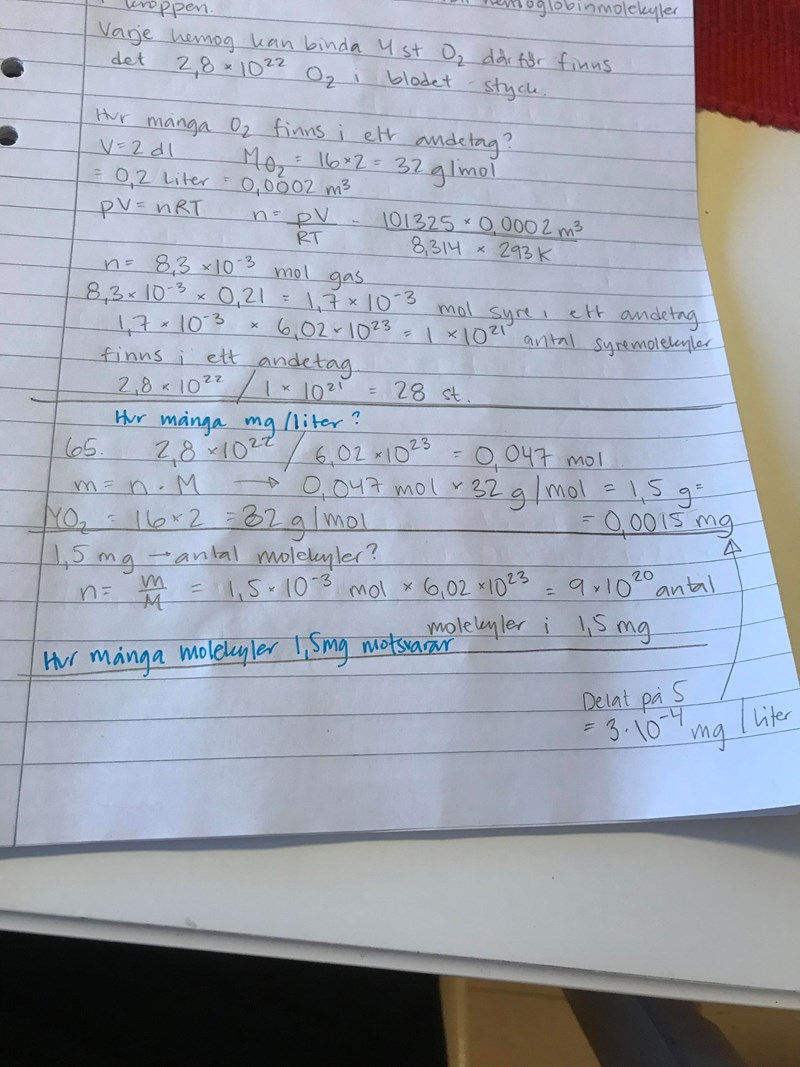 kroppen. hemoglobinmolekyler
Varje hemog kan binda 4 st O2 därför finns
det 2,8 × 10^22 O2 i blodet - styck.
Hur många O2 finns i ett andetag?
V = 2 dl M O2 = 16×2 = 32 g/mol
= 0,2 liter = 0,0002 m^3
pV = nRT n = pV/RT - 101325 × 0,0002 m^3 / 8,314 × 293 K
n = 8,3 × 10^-3 mol gas
8,3 × 10^-3 × 0,21 = 1,7 × 10^-3 mol syre i ett andetag
1,7 × 10^-3 × 6,02 × 10^23 = 1 × 10^21 antal syremolekyler
finns i ett andetag
2,8 × 10^22 / 1 × 10^21 = 28 st.
Hur många mg/liter?
65. 2,8 × 10^22 / 6,02 × 10^23 = 0,047 mol
m = n · M → 0,047 mol × 32 g/mol = 1,5 g =
MO2 = 16 × 2 = 32 g/mol = 0,0015 mg
1,5 mg → antal molekyler?
n = m/M = 1,5 × 10^-3 mol × 6,02 × 10^23 = 9 × 10^20 antal
molekyler i 1,5 mg
Hur många molekyler 1,5mg motsvarar
Delat på 5
= 3 · 10^-4 mg / liter